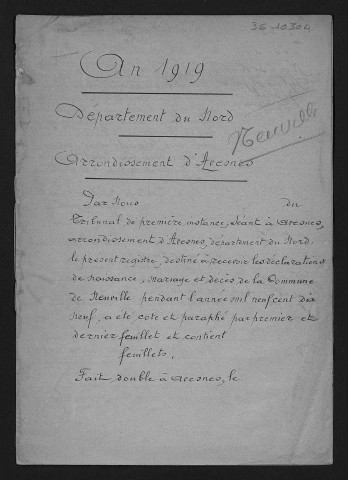 36-10304
An 1919
Département du Nord
Neuville
Arrondissement d'Avesnes
Par Nous du
Tribunal de première instance, séant à Avesnes,
arrondissement d'Avesnes, département du Nord.
le présent registre, destiné à recevoir les déclarations
de naissance, mariage et décès de la Commune
de Neuville pendant l'année mil neuf cent dix
neuf, a été coté et paraphé par premier et
dernier feuillet et contient
feuillets.
Fait double à Avesnes, le